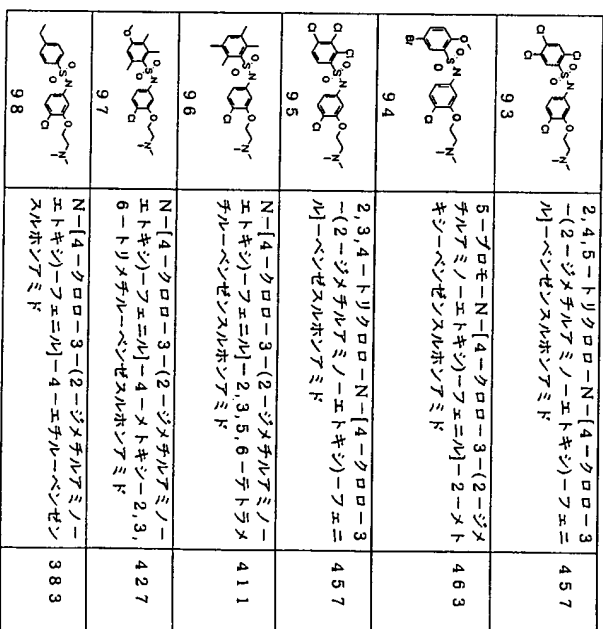 Cl Cl Cl O S O N Cl O N
93
2,4,5−トリクロロ−N−[4−クロロ−3
−(2−ジメチルアミノ−エトキシ)−フェニ
ル]−ベンゼンスルホンアミド
457
Br O O S O N Cl O N
94
5−ブロモ−N−[4−クロロ−3−(2−ジメ
チルアミノ−エトキシ)−フェニル]−2−メト
キシ−ベンゼンスルホンアミド
463
Cl Cl Cl O S O N Cl O N
95
2,3,4−トリクロロ−N−[4−クロロ−3
−(2−ジメチルアミノ−エトキシ)−フェニ
ル]−ベンゼスルホンアミド
457
O S O N Cl O N
96
N−[4−クロロ−3−(2−ジメチルアミノ−
エトキシ)−フェニル]−2,3,5,6−テトラメ
チル−ベンゼンスルホンアミド
411
O O S O N Cl O N
97
N−[4−クロロ−3−(2−ジメチルアミノ−
エトキシ)−フェニル]−4−メトキシ−2,3,
6−トリメチル−ベンゼスルホンアミド
427
O S O N Cl O N
98
N−[4−クロロ−3−(2−ジメチルアミノ−
エトキシ)−フェニル]−4−エチル−ベンゼン
スルホンアミド
383